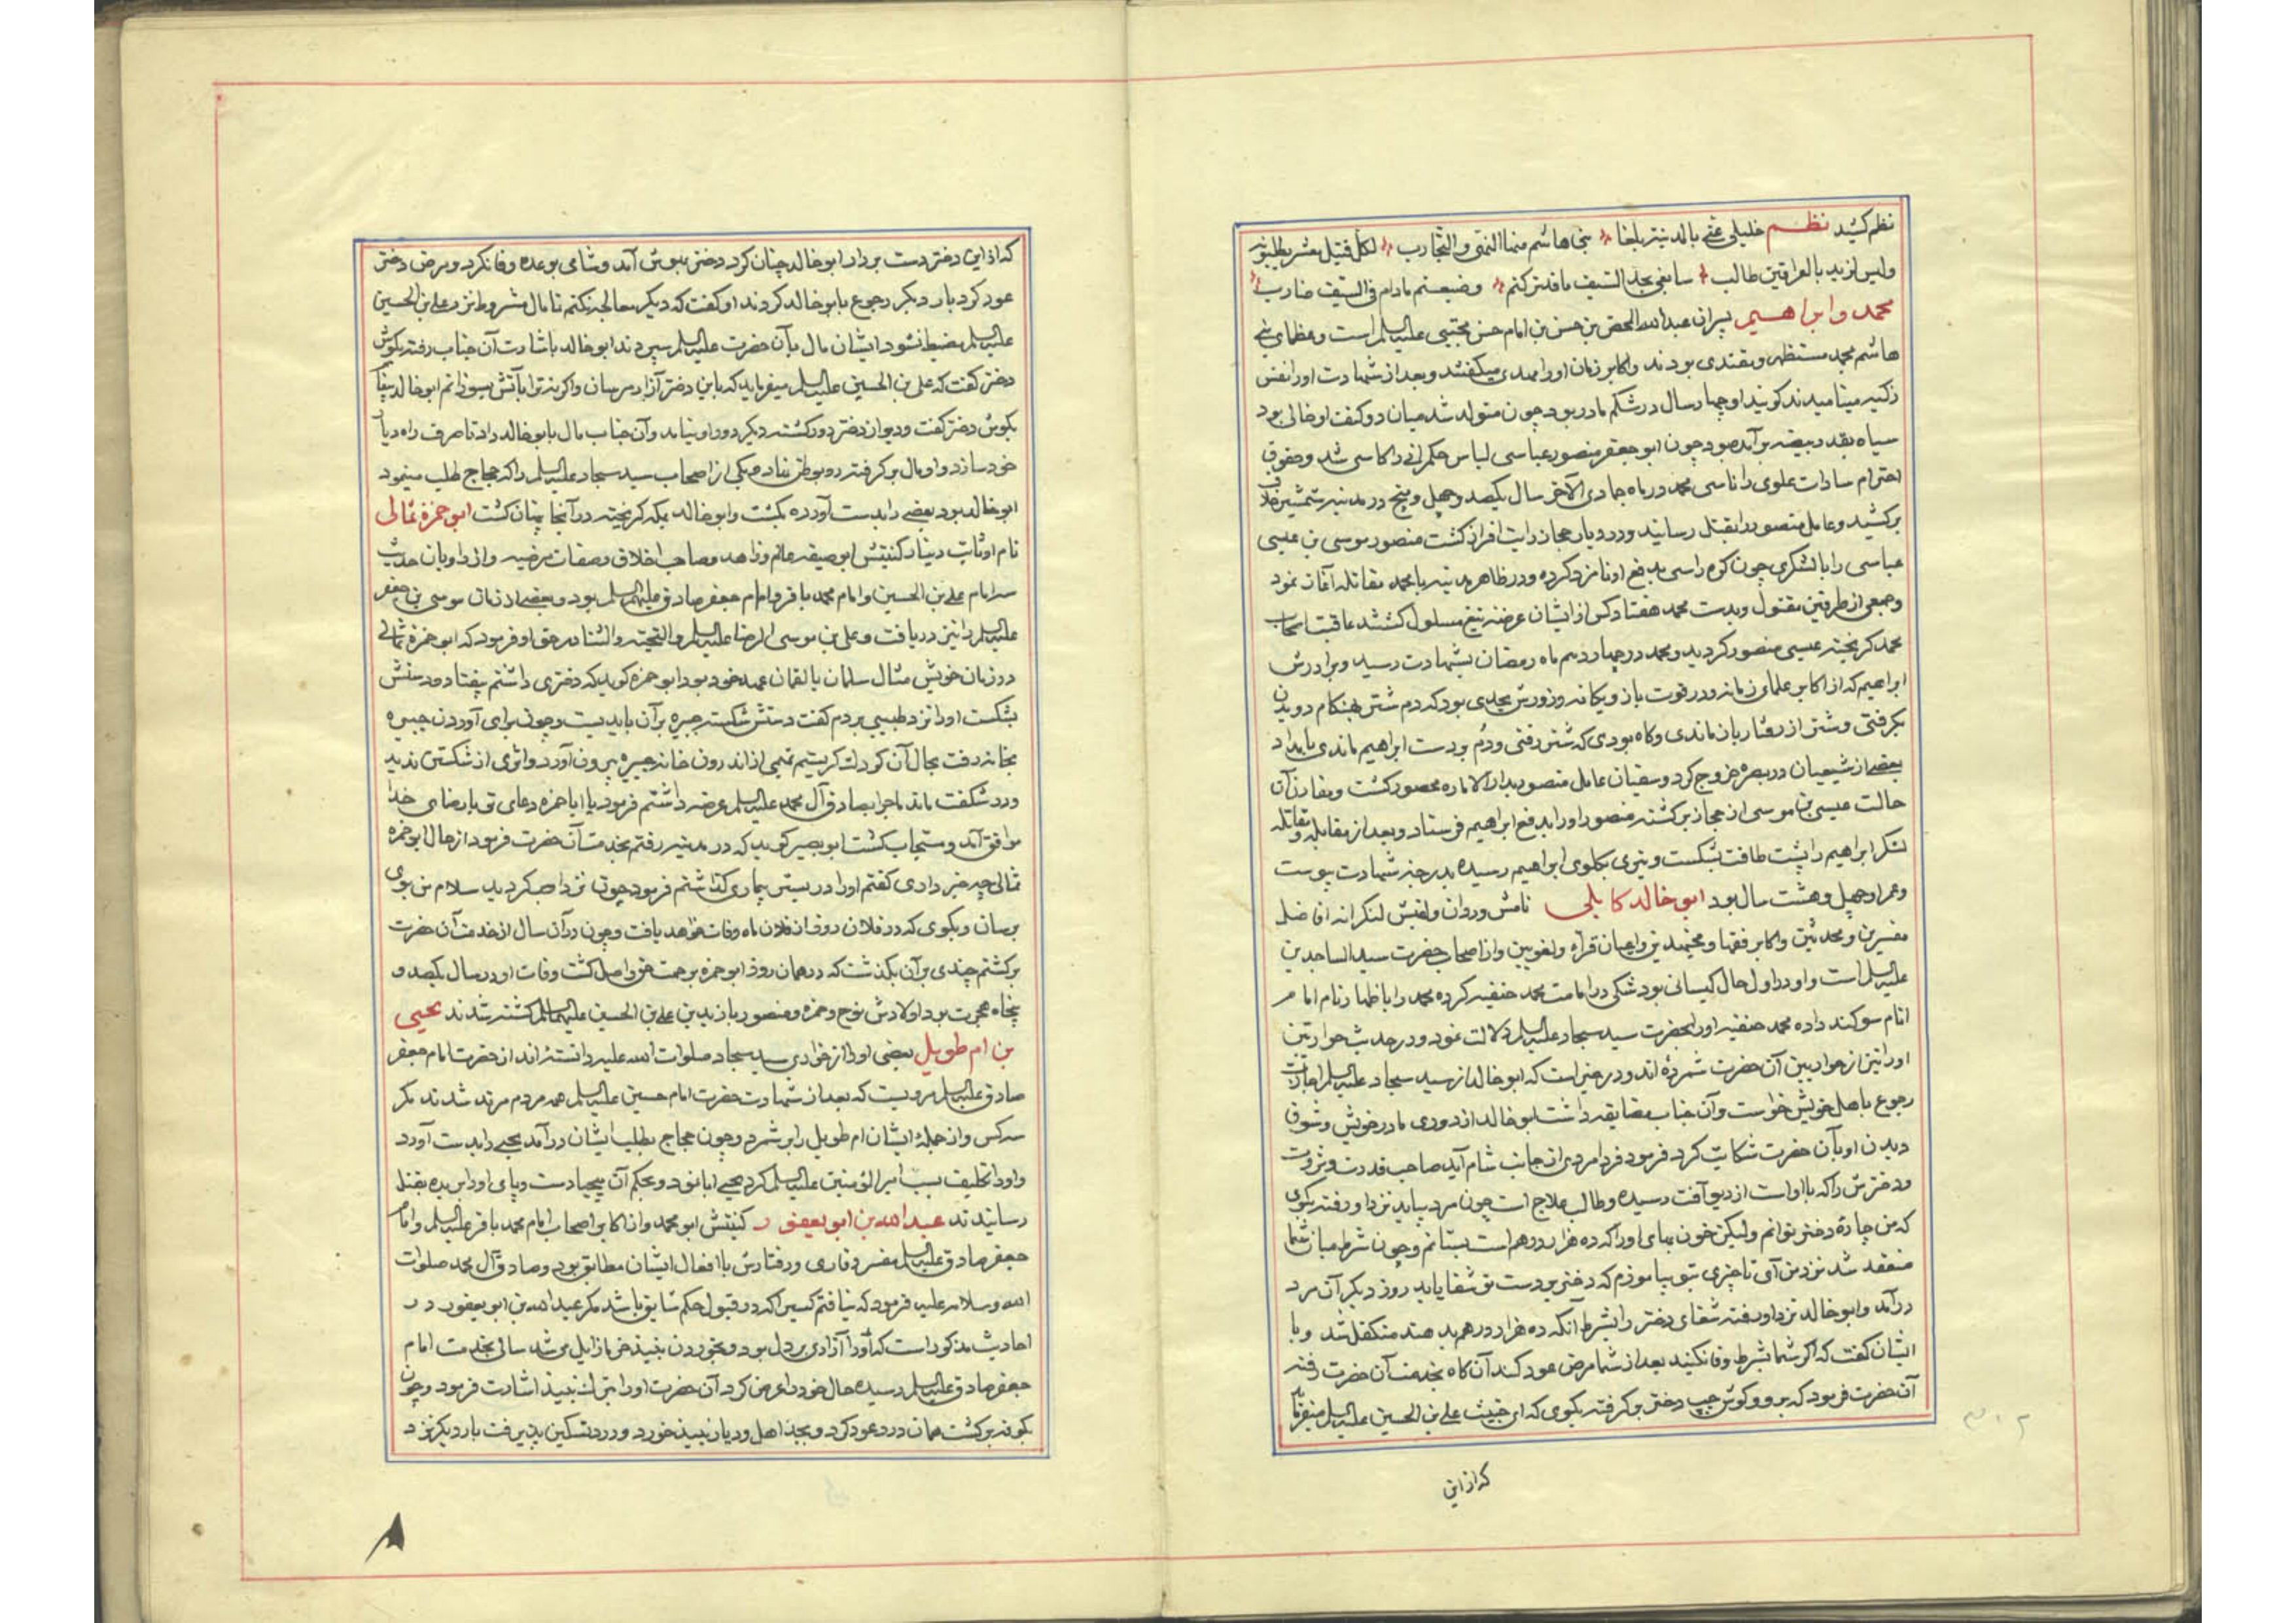 نظم کشید نظم خلیلی عنی بالمدینة بلغا بنی هاشم منها النهی والتجارب لکل قتیل معشر یطلبونه
ولیس لزید بالعراقین طالب سابغی بحد السیف ما قدترکتم وضیعتم مادام فی السیف ضارب
محمد و ابراهیم پسران عبدالله المحض بن حسن بن امام حسن مجتبی علیه السلم است و عظمای بنی
هاشم بمحمد مستظهر و مقتدی بودند و اکابر زمان او را مهدی میکفتند و بعد از شهادت او را نفس
زکیه مینامیدند کویند او چهار سال در شکم مادر بود چون متولد شد میان دو کتف او خالی بود
سیاه بقدر بیضه برآمده بود چون ابو جعفر منصور عباسی لباس حکمرانی را کاسی شد و حقوق
احترام سادات علوی را ناسی محمد در ماه جمادی الآخر سال یکصد و چهل و پنج در مدینه شمشیر خلاف
برکشید و عامل منصور را بقتل رسانید و در دیار حجاز رایت افراز کشت منصور موسی بن عیسی
عباسی را با لشکری چون کوه راسی بدفع او نامزد کرده و در ظاهر مدینه با محمد مقاتله آغاز نمود
و جمعی از طرفین مقتول و بدست محمد هفتاد کس از ایشان عرضه تیغ مسلول کشتند عاقبت اصحاب
محمد کریخته عیسی منصور کردید و محمد در چهاردهم ماه رمضان بشهادت رسید و برادرش
ابراهیم که از اکابر علمای زمانه و در قوت بازو یکانه و زورش بحدی بود که دم شتر بهنکام دویدن
بکرفتی و شتر از رفتار باز ماندی و کاه بودی که شتر رفتی و دم بدست ابراهیم ماندی بامداد
بعضی از شیعیان در بصره خروج کرد و سفیان عامل منصور بدار الاماره محصور کشت و مقارن آن
حالت عیسی بن موسی از حجاز برکشته منصور او را بدفع ابراهیم فرستاد و بعد از مقابله و مقاتله
لشکر ابراهیم را پشت طاقت بشکست و تیری بکلوی ابراهیم رسیده بدرجه شهادت پیوست
و عمر او چهل و هشت سال بود ابو خالد کابلی نامش وردان و لقبش کنکر از افاضل
مفسرین و محدثین و اکابر فقها و مجتهدین و اعیان قراء و لغویین و از اصحاب حضرت سید الساجدین
علیه السلم است و او در اول حال کیسانی بود شکی در امامت محمد حنفیه کرده محمد را باظهار نام امام
انام سوکند داده محمد حنفیه او را بحضرت سید سجاد علیه السلم دلالت نمود و در حدیث حواریین
او را نیز از حواریین آن حضرت شمرده اند و در خبر است که ابو خالد از سید سجاد علیه السلم اجازت
رجوع باهل خویش خواست و آن جناب مضایقه داشت ابو خالد از دوری مادر خویش و شوق
دیدن او بآن حضرت شکایت کرد فرمود فردا مردی از جانب شام آید صاحب قدرت و ثروت
و دخترش را که با اوست از دیو آفت رسیده و طالب علاج است چون مرد بیاید نزد او رفته بکوی
که من چارۀ دختر توانم ولیکن خون بهای او را که ده هزار درهم است بستانم و چون شرط میان شما
منعقد شد نزد من آی تا چیزی بتو بیاموزم که دختر بر دست تو شفا یابد روز دیکر آن مرد
درآمد و ابو خالد نزد او رفته شفای دختر را بشرط آنکه ده هزار درهم بدهند متکفل شد و با
ایشان کفت که اکر شما بشرط وفا نکنید بعد از شما مرض عود کند آن کاه بخدمت آن حضرت رفته
آن حضرت فرمود که برو و کوش چپ دختر بکرفته بکوی که ای خبیث علی بن الحسین علیه السلم میفرماید
که از این
۳۰۲
که از این دختر دست بردار ابو خالد چنان کرد دختر بهوش آمد و شامی بوعده وفا نکرد و مرض دختر
عود کرد بار دیکر رجوع بابو خالد کردند او کفت که دیکر معالجه نکنم تا مال مشروط نزد علی بن الحسین
علیه السلم مضبوط نشود ایشان مال بآن حضرت علیه السلم سپردند ابو خالد باشارت آن جناب رفته بکوش
دختر کفت که علی بن الحسین علیه السلم میفرماید که باین دختر آزار مرسان و اکر نه ترا بآتش بسوزانم ابو خالد
بکوش دختر کفت و دیو از دختر دور کشته دیکر دور او نیامد و آن جناب مال بابو خالد داد تا صرف راه دیار
خود سازد و او مال برکرفته رو بوطن نهاد و یکی از اصحاب سید سجاد علیه السلم را که حجاج طلب مینمود
ابو خالد بود بعضی را بدست آورده بکشت و ابو خالد بمکه کریخته در آنجا پنهان کشت ابو حمزه ثمالی
نام او ثابت دینار کنیتش ابو صفیه عالم و زاهد و صاحب اخلاق و صفات مرضیه و از راویان حدیث
سه امام علی بن الحسین و امام محمد باقر و امام جعفر صادق علیهم السلم بود و بعضی از زمان موسی بن جعفر
علیه السلم را نیز دریافت و علی بن موسی الرضا علیه السلم و التحیة والثنا در حق او فرمود که ابو حمزه ثمالی
در زمان خویش مثال سلمان یا لقمان عهد خود بود ابو حمزه کوید که دختری داشتم بیفتاد و دستش
بشکست او را نزد طبیبی بردم کفت دستش شکسته جبیره برآن باید بست و چون برای آوردن جبیره
بخانه رفت بحال آن کودک کریستیم تمیمی از اندرون خانه جبیره بیرون آورد و اثری از شکستن ندید
و در شکفت ماند ماجرا بصادق آل محمد علیه السلم عرضه داشتم فرمود یا ابا حمزه دعای تو با رضای خدا
موافق آمد و مستجاب کشت ابو بصیر کوید که در مدینه رفتم بخدمت آن حضرت فرمود از حال ابو حمزه
ثمالی چه خبر داری کفتم او را در بستر بیماری کذاشتم فرمود چون نزد او بازکردید سلام من بوی
برسان و بکوی که در فلان روز از فلان ماه وفات خواهد یافت و چون در آن سال از خدمت آن حضرت
برکشتم چندی برآن بکذشت که در همان روز ابو حمزه برحمت حق واصل کشت وفات او در سال یکصد و
پنجاه هجرت بود اولادش نوح و حمزه و منصور با زید بن علی بن الحسین علیهما السلم کشته شدند یحیی
بن ام طویل بعضی او را از حواری سید سجاد صلوات الله علیه دانسته اند از حضرت امام جعفر
صادق علیه السلم مرویست که بعد از شهادت حضرت امام حسین علیه السلم همه مردم مرتد شدند مکر
سه کس و از جملۀ ایشان ام طویل را برشمرد و چون حجاج بطلب ایشان درآمد یحیی را بدست آورد
و او را تکلیف بسب امیر المؤمنین علیه السلم کرد یحیی ابا نمود و بحکم آن بیحیا دست و پای او را بریده بقتل
رسانیدند عبد الله بن ابو یعفور کنیتش ابو محمد و از اکابر اصحاب امام محمد باقر علیه السلم و امام
جعفر صادق علیه السلم مفسر و قاری و رفتارش با افعال ایشان مطابق بود و صادق آل محمد صلوات
الله و سلامه علیه فرمود که نیافتم کسیرا که در قبول حکم شایق باشد مکر عبد الله بن ابو یعفور در
احادیث مذکور است که او را آزادی بر دل بود و بخوردن نبیذ خرما زایل می شد سالی بخدمت امام
جعفر صادق علیه السلم رسیده حال خود را عرض کرد آن حضرت او را بترک نبیذ اشارت فرمود و چون
بکوفه برکشت همان درد عود کرد و بجد اهل و دیار نبیذ خورد و درد تسکین پذیرفت بار دیکر نزد